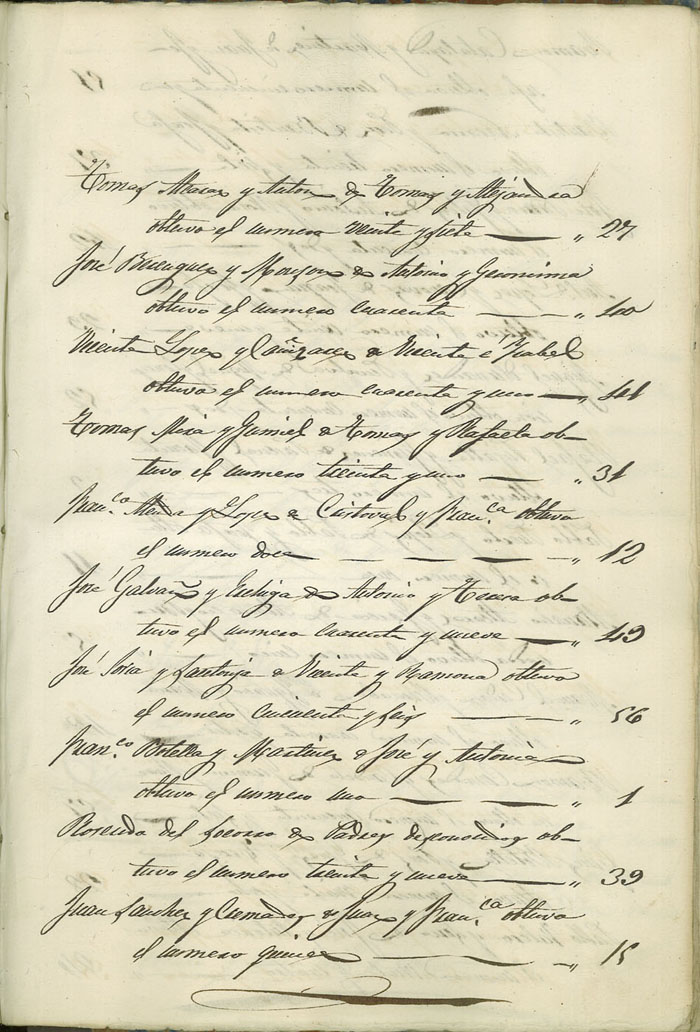 Tomas y Anton de Tomas y Alejandra
obtuvo el numero veinte y siete — „ 27
José Berenguer y Monzon de Antonio y Geronima
obtuvo el numero cuarenta — — „ 40
Vicente Lopez y Cañizares de Vicente é Ysabel
obtuvo el numero cuarenta y uno — „ 41
Tomas Mira y Jumiel de Tomas y Rafaela ob-
tuvo el numero treinta y uno — „ 31
Fran.co y Lopez de Cristoval y Fran.ca obtuvo
el numero doce — — — — — „ 12
José Galvañ y de Antonio y Teresa ob-
tuvo el numero cuarenta y nueve — „ 49
José Soria y Santonja de Vicente y Ramona obtuvo
el numero cincuenta y seis — — „ 56
Fran.co Botella y Martinez de José y Antonia
obtuvo el numero uno — — — „ 1
Rosendo del Socorro de Padres desconocidos ob-
tuvo el numero treinta y nueve — „ 39
Juan Sanchez y de Juan y Fran.ca obtuvo
el numero quince — — — „ 15